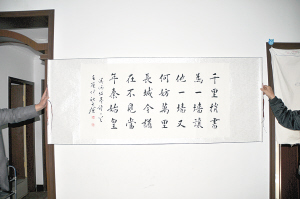 千里捎書
為一墙讓
他一墙又
何妨萬里
長城今猶
在不見當
年秦始皇